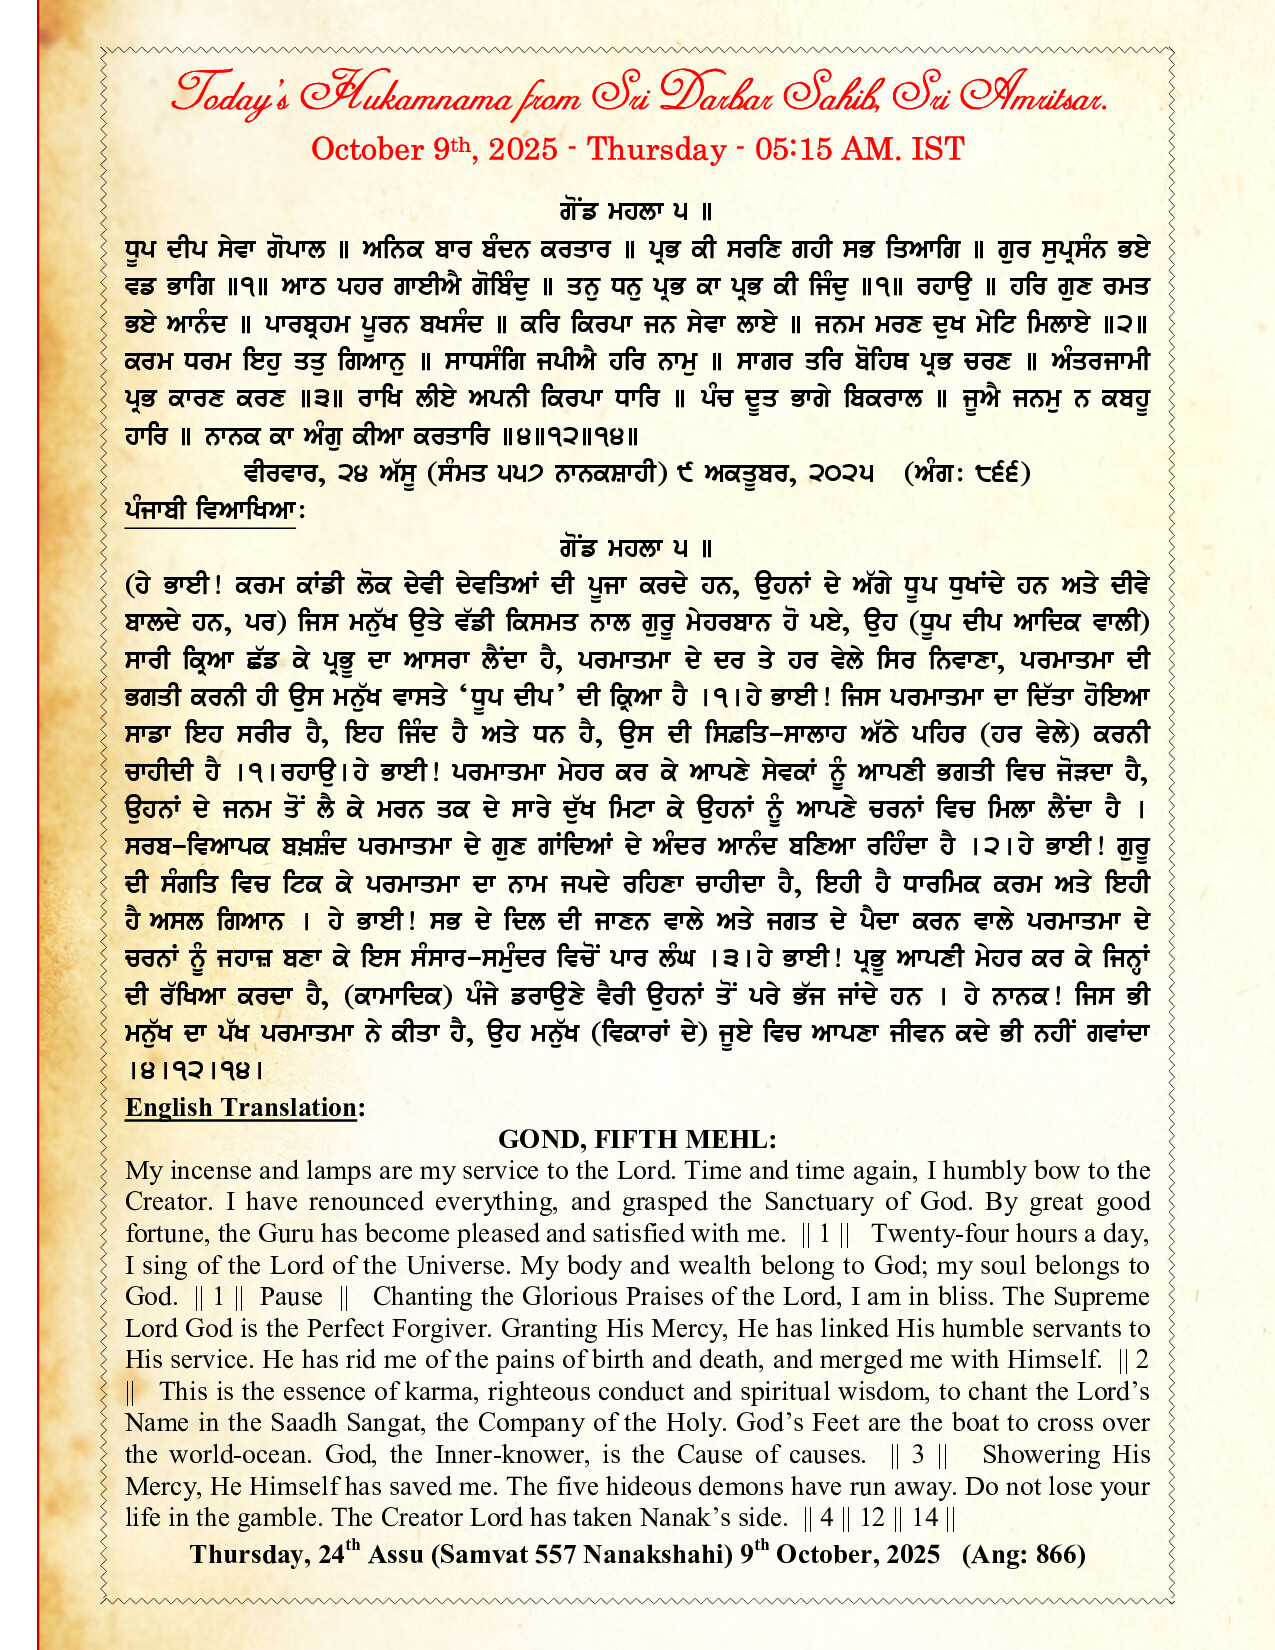 Today's Hukamnama from Sri Darbar Sahib, Sri Amritsar.
October 9th, 2025 - Thursday - 05:15 AM. IST
ਗੋਂਡ ਮਹਲਾ ੫ ॥
ਧੂਪ ਦੀਪ ਸੇਵਾ ਗੋਪਾਲ ॥ ਅਨਿਕ ਬਾਰ ਬੰਦਨ ਕਰਤਾਰ ॥ ਪ੍ਰਭ ਕੀ ਸਰਣਿ ਗਹੀ ਸਭ ਤਿਆਗਿ ॥ ਗੁਰ ਸੁਪ੍ਰਸੰਨ ਭਏ
ਵਡ ਭਾਗਿ ॥੧॥ ਆਠ ਪਹਰ ਗਾਈਐ ਗੋਬਿੰਦੁ ॥ ਤਨੁ ਧਨੁ ਪ੍ਰਭ ਕਾ ਪ੍ਰਭ ਕੀ ਜਿੰਦੁ ॥੧॥ ਰਹਾਉ ॥ ਹਰਿ ਗੁਣ ਰਮਤ
ਭਏ ਆਨੰਦ ॥ ਪਾਰਬ੍ਰਹਮ ਪੂਰਨ ਬਖਸੰਦ ॥ ਕਰਿ ਕਿਰਪਾ ਜਨ ਸੇਵਾ ਲਾਏ ॥ ਜਨਮ ਮਰਣ ਦੁਖ ਮੇਟਿ ਮਿਲਾਏ ॥੨॥
ਕਰਮ ਧਰਮ ਇਹੁ ਤਤੁ ਗਿਆਨੁ ॥ ਸਾਧਸੰਗਿ ਜਪੀਐ ਹਰਿ ਨਾਮੁ ॥ ਸਾਗਰ ਤਰਿ ਬੋਹਿਥ ਪ੍ਰਭ ਚਰਣ ॥ ਅੰਤਰਜਾਮੀ
ਪ੍ਰਭ ਕਾਰਣ ਕਰਣ ॥੩॥ ਰਾਖਿ ਲੀਏ ਅਪਨੀ ਕਿਰਪਾ ਧਾਰਿ ॥ ਪੰਚ ਦੂਤ ਭਾਗੇ ਬਿਕਰਾਲ ॥ ਜੂਐ ਜਨਮੁ ਨ ਕਬਹੂ
ਹਾਰਿ ॥ ਨਾਨਕ ਕਾ ਅੰਗੁ ਕੀਆ ਕਰਤਾਰਿ ॥੪॥੧੨॥੧੪॥
ਵੀਰਵਾਰ, ੨੪ ਅੱਸੂ (ਸੰਮਤ ੫੫੭ ਨਾਨਕਸ਼ਾਹੀ) ੯ ਅਕਤੂਬਰ, ੨੦੨੫ (ਅੰਗ: ੮੬੬)
ਪੰਜਾਬੀ ਵਿਆਖਿਆ:
ਗੋਂਡ ਮਹਲਾ ੫ ॥
(ਹੇ ਭਾਈ! ਕਰਮ ਕਾਂਡੀ ਲੋਕ ਦੇਵੀ ਦੇਵਤਿਆਂ ਦੀ ਪੂਜਾ ਕਰਦੇ ਹਨ, ਉਹਨਾਂ ਦੇ ਅੱਗੇ ਧੂਪ ਧੁਖਾਂਦੇ ਹਨ ਅਤੇ ਦੀਵੇ
ਬਾਲਦੇ ਹਨ, ਪਰ) ਜਿਸ ਮਨੁੱਖ ਉਤੇ ਵੱਡੀ ਕਿਸਮਤ ਨਾਲ ਗੁਰੂ ਮੇਹਰਬਾਨ ਹੋ ਪਏ, ਉਹ (ਧੂਪ ਦੀਪ ਆਦਿਕ ਵਾਲੀ)
ਸਾਰੀ ਕ੍ਰਿਆ ਛੱਡ ਕੇ ਪ੍ਰਭੂ ਦਾ ਆਸਰਾ ਲੈਂਦਾ ਹੈ, ਪਰਮਾਤਮਾ ਦੇ ਦਰ ਤੇ ਹਰ ਵੇਲੇ ਸਿਰ ਨਿਵਾਣਾ, ਪਰਮਾਤਮਾ ਦੀ
ਭਗਤੀ ਕਰਨੀ ਹੀ ਉਸ ਮਨੁੱਖ ਵਾਸਤੇ ‘ਧੂਪ ਦੀਪ’ ਦੀ ਕ੍ਰਿਆ ਹੈ ।੧।ਹੇ ਭਾਈ! ਜਿਸ ਪਰਮਾਤਮਾ ਦਾ ਦਿੱਤਾ ਹੋਇਆ
ਸਾਡਾ ਇਹ ਸਰੀਰ ਹੈ, ਇਹ ਜਿੰਦ ਹੈ ਅਤੇ ਧਨ ਹੈ, ਉਸ ਦੀ ਸਿਫ਼ਤਿ-ਸਾਲਾਹ ਅੱਠੇ ਪਹਿਰ (ਹਰ ਵੇਲੇ) ਕਰਨੀ
ਚਾਹੀਦੀ ਹੈ ।੧।ਰਹਾਉ।ਹੇ ਭਾਈ! ਪਰਮਾਤਮਾ ਮੇਹਰ ਕਰ ਕੇ ਆਪਣੇ ਸੇਵਕਾਂ ਨੂੰ ਆਪਣੀ ਭਗਤੀ ਵਿਚ ਜੋੜਦਾ ਹੈ,
ਉਹਨਾਂ ਦੇ ਜਨਮ ਤੋਂ ਲੈ ਕੇ ਮਰਨ ਤਕ ਦੇ ਸਾਰੇ ਦੁੱਖ ਮਿਟਾ ਕੇ ਉਹਨਾਂ ਨੂੰ ਆਪਣੇ ਚਰਨਾਂ ਵਿਚ ਮਿਲਾ ਲੈਂਦਾ ਹੈ ।
ਸਰਬ-ਵਿਆਪਕ ਬਖ਼ਸ਼ੰਦ ਪਰਮਾਤਮਾ ਦੇ ਗੁਣ ਗਾਂਦਿਆਂ ਦੇ ਅੰਦਰ ਆਨੰਦ ਬਣਿਆ ਰਹਿੰਦਾ ਹੈ ।੨।ਹੇ ਭਾਈ! ਗੁਰੂ
ਦੀ ਸੰਗਤਿ ਵਿਚ ਟਿਕ ਕੇ ਪਰਮਾਤਮਾ ਦਾ ਨਾਮ ਜਪਦੇ ਰਹਿਣਾ ਚਾਹੀਦਾ ਹੈ, ਇਹੀ ਹੈ ਧਾਰਮਿਕ ਕਰਮ ਅਤੇ ਇਹੀ
ਹੈ ਅਸਲ ਗਿਆਨ । ਹੇ ਭਾਈ! ਸਭ ਦੇ ਦਿਲ ਦੀ ਜਾਣਨ ਵਾਲੇ ਅਤੇ ਜਗਤ ਦੇ ਪੈਦਾ ਕਰਨ ਵਾਲੇ ਪਰਮਾਤਮਾ ਦੇ
ਚਰਨਾਂ ਨੂੰ ਜਹਾਜ਼ ਬਣਾ ਕੇ ਇਸ ਸੰਸਾਰ-ਸਮੁੰਦਰ ਵਿਚੋਂ ਪਾਰ ਲੰਘ ।੩।ਹੇ ਭਾਈ! ਪ੍ਰਭੂ ਆਪਣੀ ਮੇਹਰ ਕਰ ਕੇ ਜਿਨ੍ਹਾਂ
ਦੀ ਰੱਖਿਆ ਕਰਦਾ ਹੈ, (ਕਾਮਾਦਿਕ) ਪੰਜੇ ਡਰਾਉਣੇ ਵੈਰੀ ਉਹਨਾਂ ਤੋਂ ਪਰੇ ਭੱਜ ਜਾਂਦੇ ਹਨ । ਹੇ ਨਾਨਕ! ਜਿਸ ਭੀ
ਮਨੁੱਖ ਦਾ ਪੱਖ ਪਰਮਾਤਮਾ ਨੇ ਕੀਤਾ ਹੈ, ਉਹ ਮਨੁੱਖ (ਵਿਕਾਰਾਂ ਦੇ) ਜੂਏ ਵਿਚ ਆਪਣਾ ਜੀਵਨ ਕਦੇ ਭੀ ਨਹੀਂ ਗਵਾਂਦਾ
।੪।੧੨।੧੪।
English Translation:
GOND, FIFTH MEHL:
My incense and lamps are my service to the Lord. Time and time again, I humbly bow to the
Creator. I have renounced everything, and grasped the Sanctuary of God. By great good
fortune, the Guru has become pleased and satisfied with me. || 1 || Twenty-four hours a day,
I sing of the Lord of the Universe. My body and wealth belong to God; my soul belongs to
God. || 1 || Pause || Chanting the Glorious Praises of the Lord, I am in bliss. The Supreme
Lord God is the Perfect Forgiver. Granting His Mercy, He has linked His humble servants to
His service. He has rid me of the pains of birth and death, and merged me with Himself. || 2
|| This is the essence of karma, righteous conduct and spiritual wisdom, to chant the Lord’s
Name in the Saadh Sangat, the Company of the Holy. God’s Feet are the boat to cross over
the world-ocean. God, the Inner-knower, is the Cause of causes. || 3 || Showering His
Mercy, He Himself has saved me. The five hideous demons have run away. Do not lose your
life in the gamble. The Creator Lord has taken Nanak’s side. || 4 || 12 || 14 ||
Thursday, 24th Assu (Samvat 557 Nanakshahi) 9th October, 2025 (Ang: 866)